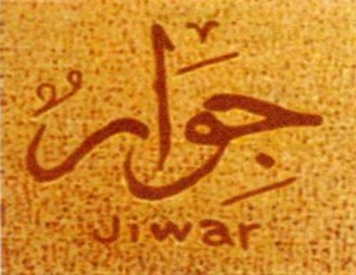 جِوَارٌ
Jiwar